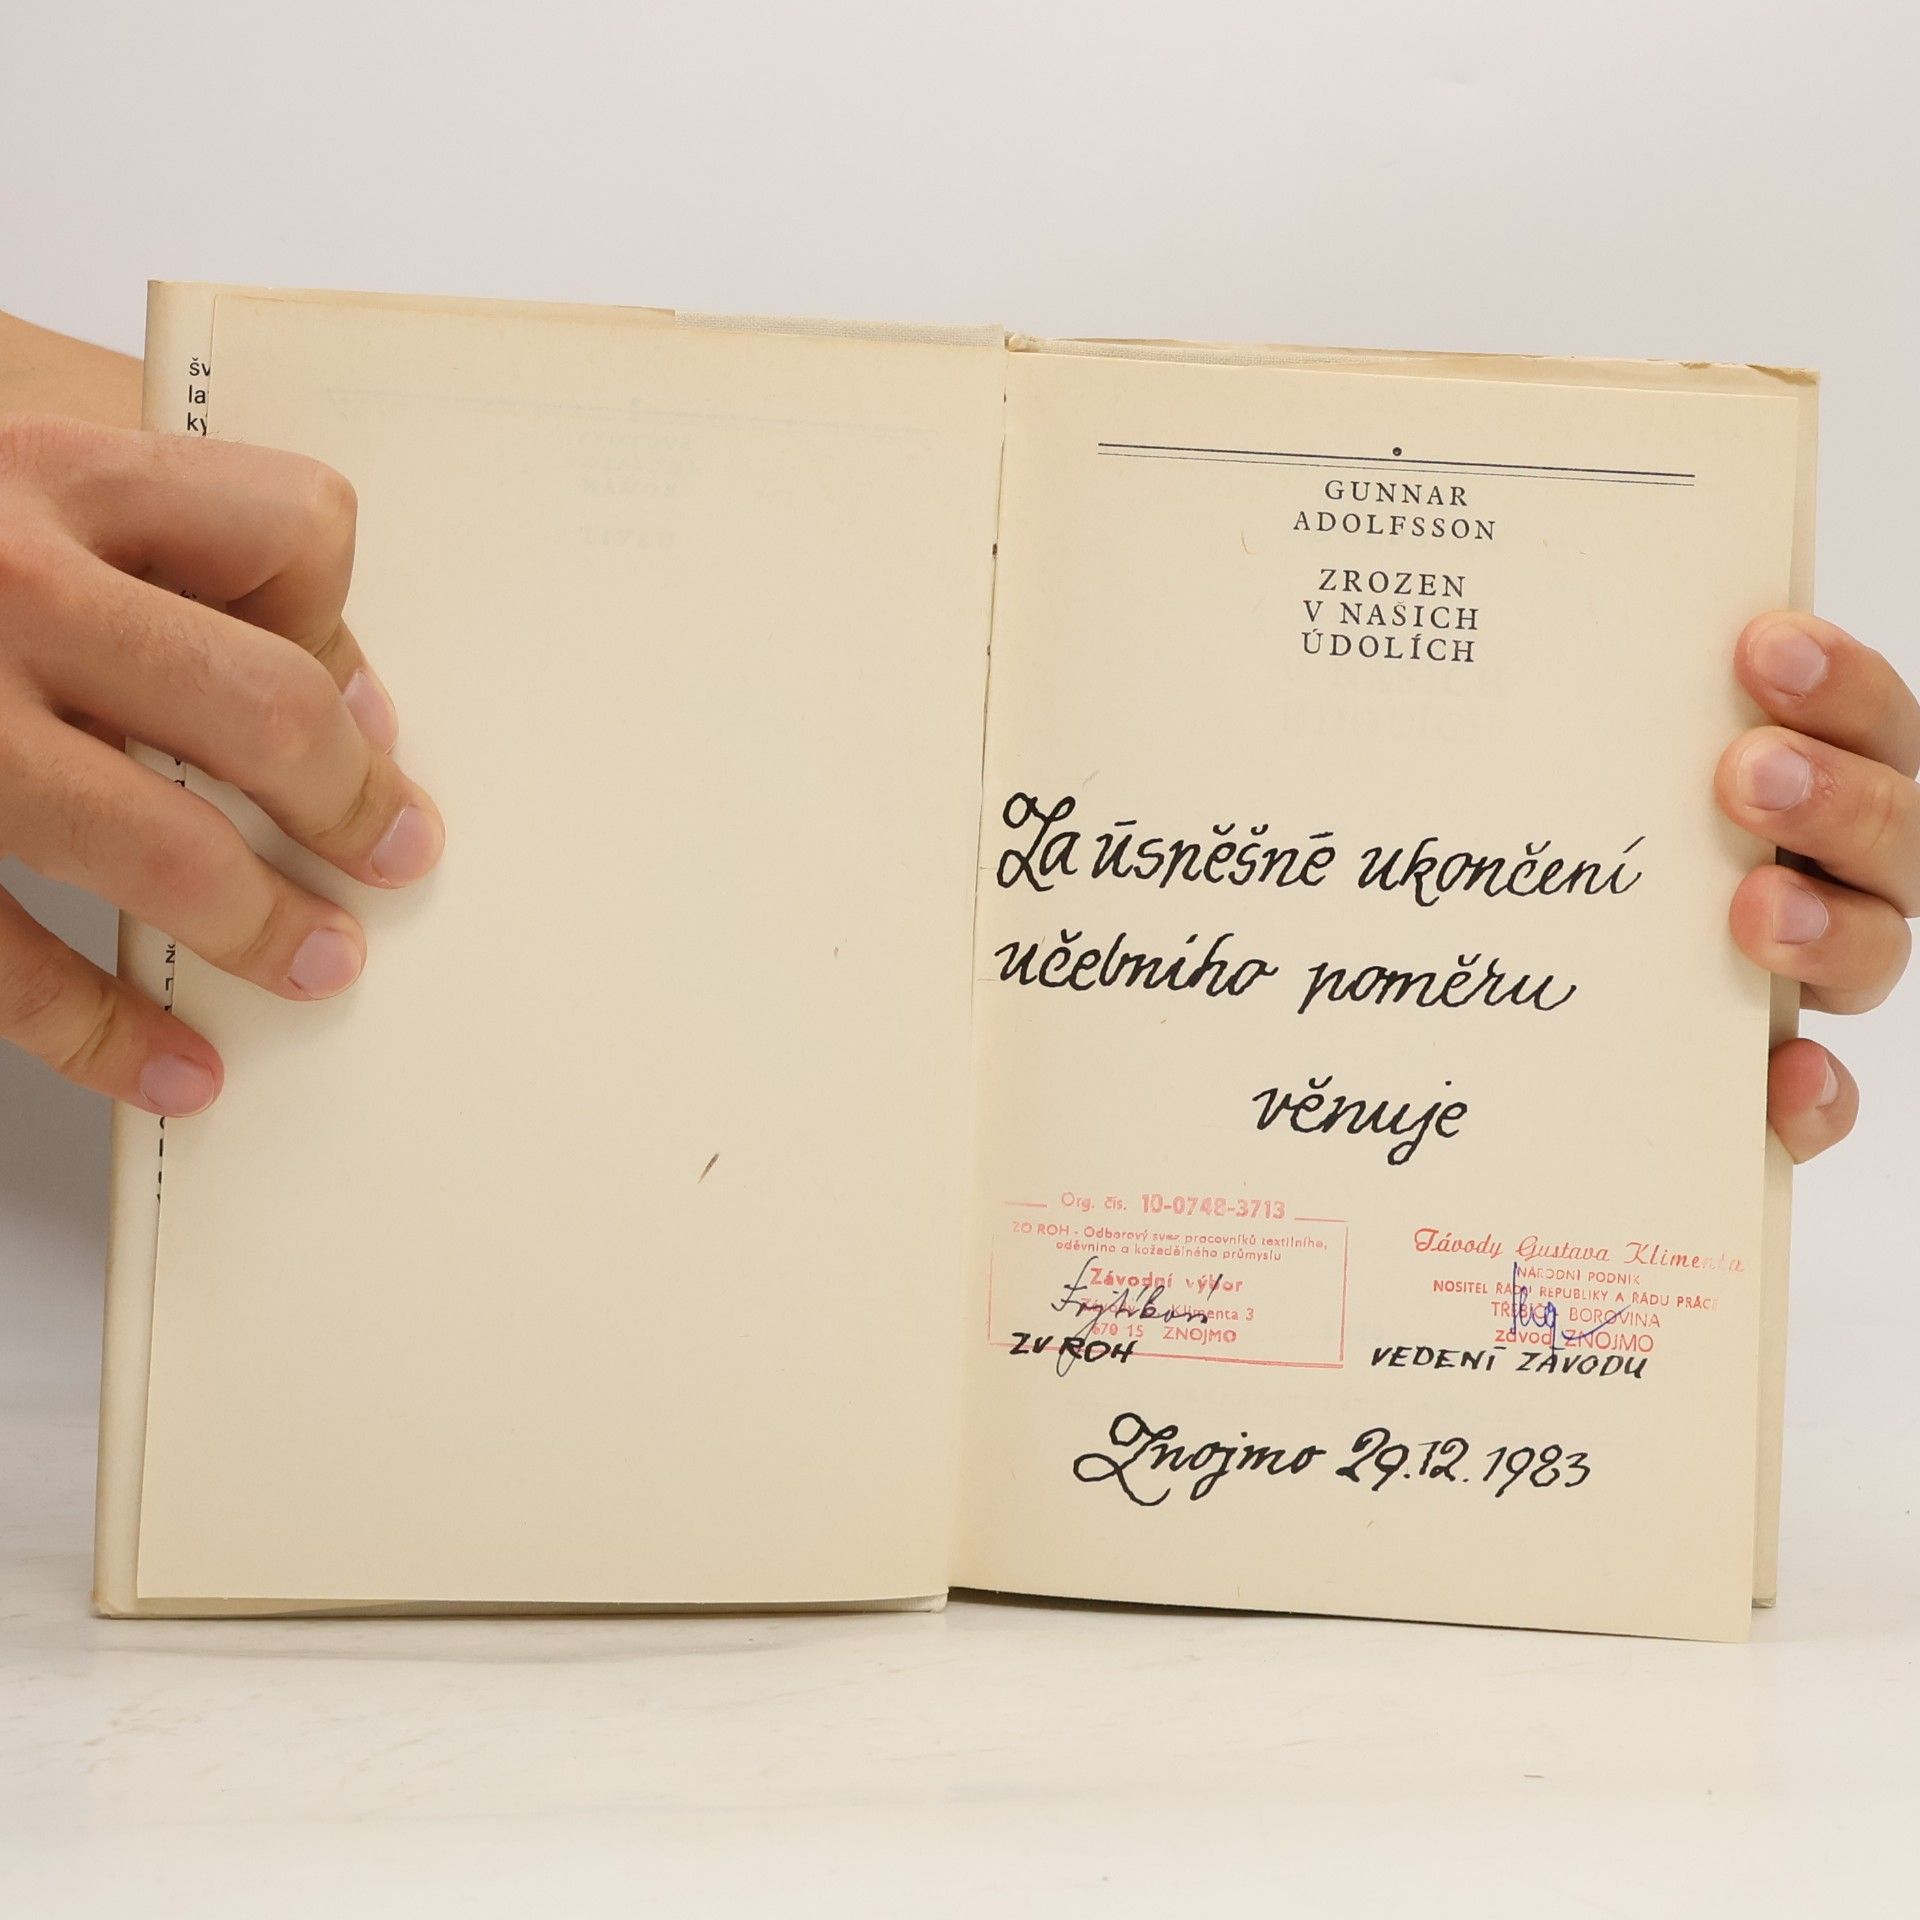 šv
la
ký
GUNNAR
ADOLFSSON
ZROZEN
V NAŠICH
ÚDOLÍCH
Za úspěšné ukončení
učebního poměru
věnuje
Org. čís. 10-0748-3713
ZO ROH - Odborový svaz pracovníků textilního,
oděvního a kožedělného průmyslu
Závodní výbor
Závody G. Klimenta 3
670 15 ZNOJMO
ZV ROH
Závody Gustava Klimenta
NÁRODNÍ PODNIK
NOSITEL ŘÁDU REPUBLIKY A ŘÁDU PRÁCE
TŘEBÍČ BOROVINA
závod ZNOJMO
VEDENÍ ZÁVODU
Znojmo 29.12.1983